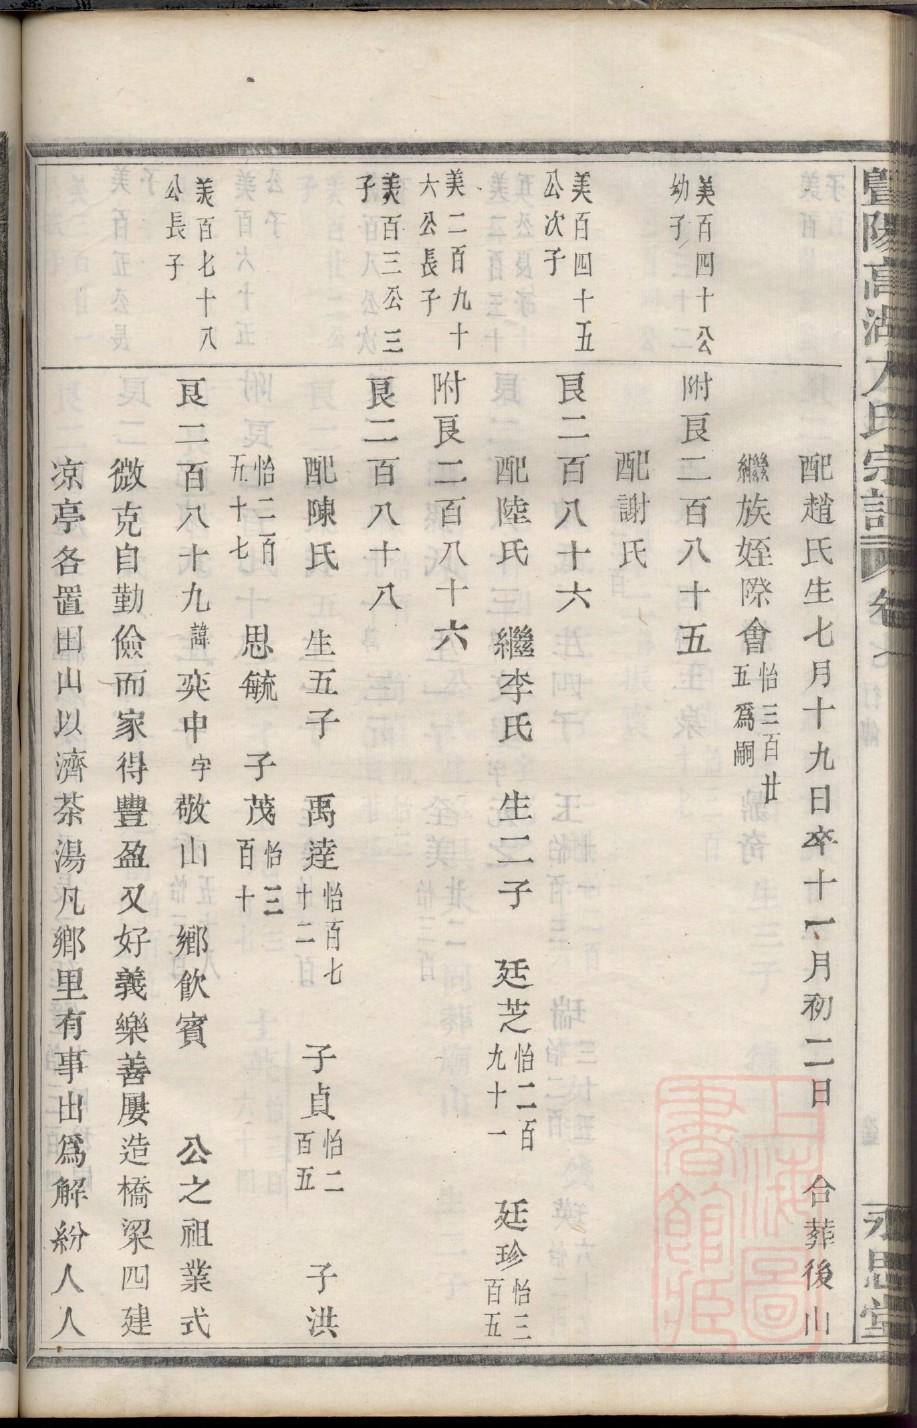 暨陽高湖方氏宗譜 卷之 行傳 永思堂
配趙氏生七月十九日卒十一月初二日 合葬後山
繼族姪際會怡三百廿五爲嗣
美百四十公幼子
附良二百八十五
配謝氏
美百四十五公次子
良二百八十六
配陸氏 繼李氏 生二子 廷芝怡二百九十一 廷珍怡三百五
美二百九十六公長子
附良二百八十六
美百三公三子
良二百八十八
配陳氏 生五子 禹逵怡百七十二 子貞怡二百五 子洪
怡二百五十七 思毓 子茂怡三百十
美百七十八公長子
良二百八十九諱奕中字敬山 鄉飲賓 公之祖業式
微克自勤儉而家得豐盈又好義樂善屢造橋梁四建
凉亭各置田山以濟茶湯凡鄉里有事出爲解紛人人
上海圖書館藏